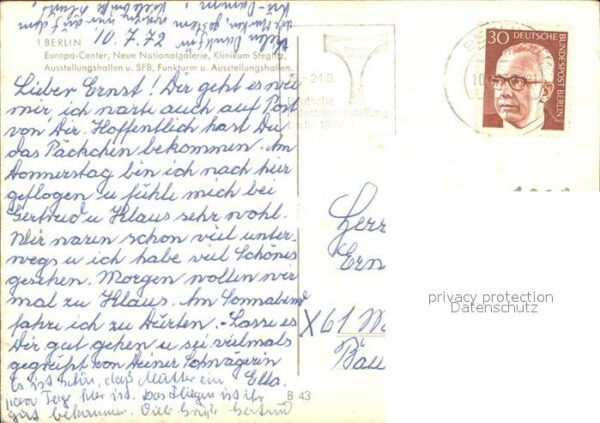 1 BERLIN
Europa-Center, Neue Nationalgalerie, Klinikum Steglitz,
Ausstellungshallen u. SFB, Funkturm u. Ausstellungshallen.
Lieber Ernst! Dir geht es wie
mir, ich warte auch auf Post
von Dir. Hoffentlich hast Du
das Päckchen bekommen. Am
Donnerstag bin ich nach hier
geflogen u fühle mich bei
Gertrud u Klaus sehr wohl.
Wir waren schon viel unter-
wegs u ich habe viel Schönes
gesehen. Morgen wollen wir
mal zu Klaus. Am Sonnabend
fahre ich zu Dürten. - Lasse es
Dir gut gehen u sei vielmals
gegrüßt von Deiner Schwägerin
Ella.
Es ist schön, daß Mutter ein
paar Tage hier ist. Das Fliegen ist ihr
gut bekommen. Viele Grüße Gertrud
B 43
30 DEUTSCHE BUNDESPOST BERLIN
- 24.9.
Herr
Ern
X61 M
Bau
privacy protection
Datenschutz